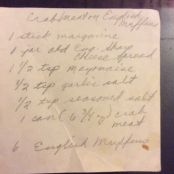 Crabmeat on English
Muffins
1 stick margarine
1 jar Old Eng. Sharp
Cheese Spread
1 1/2 tsp mayonaise
1/2 tsp garlic salt
1/2 tsp seasoned salt
1 can (6 1/2 oz) crab
meat
6 English Muffins